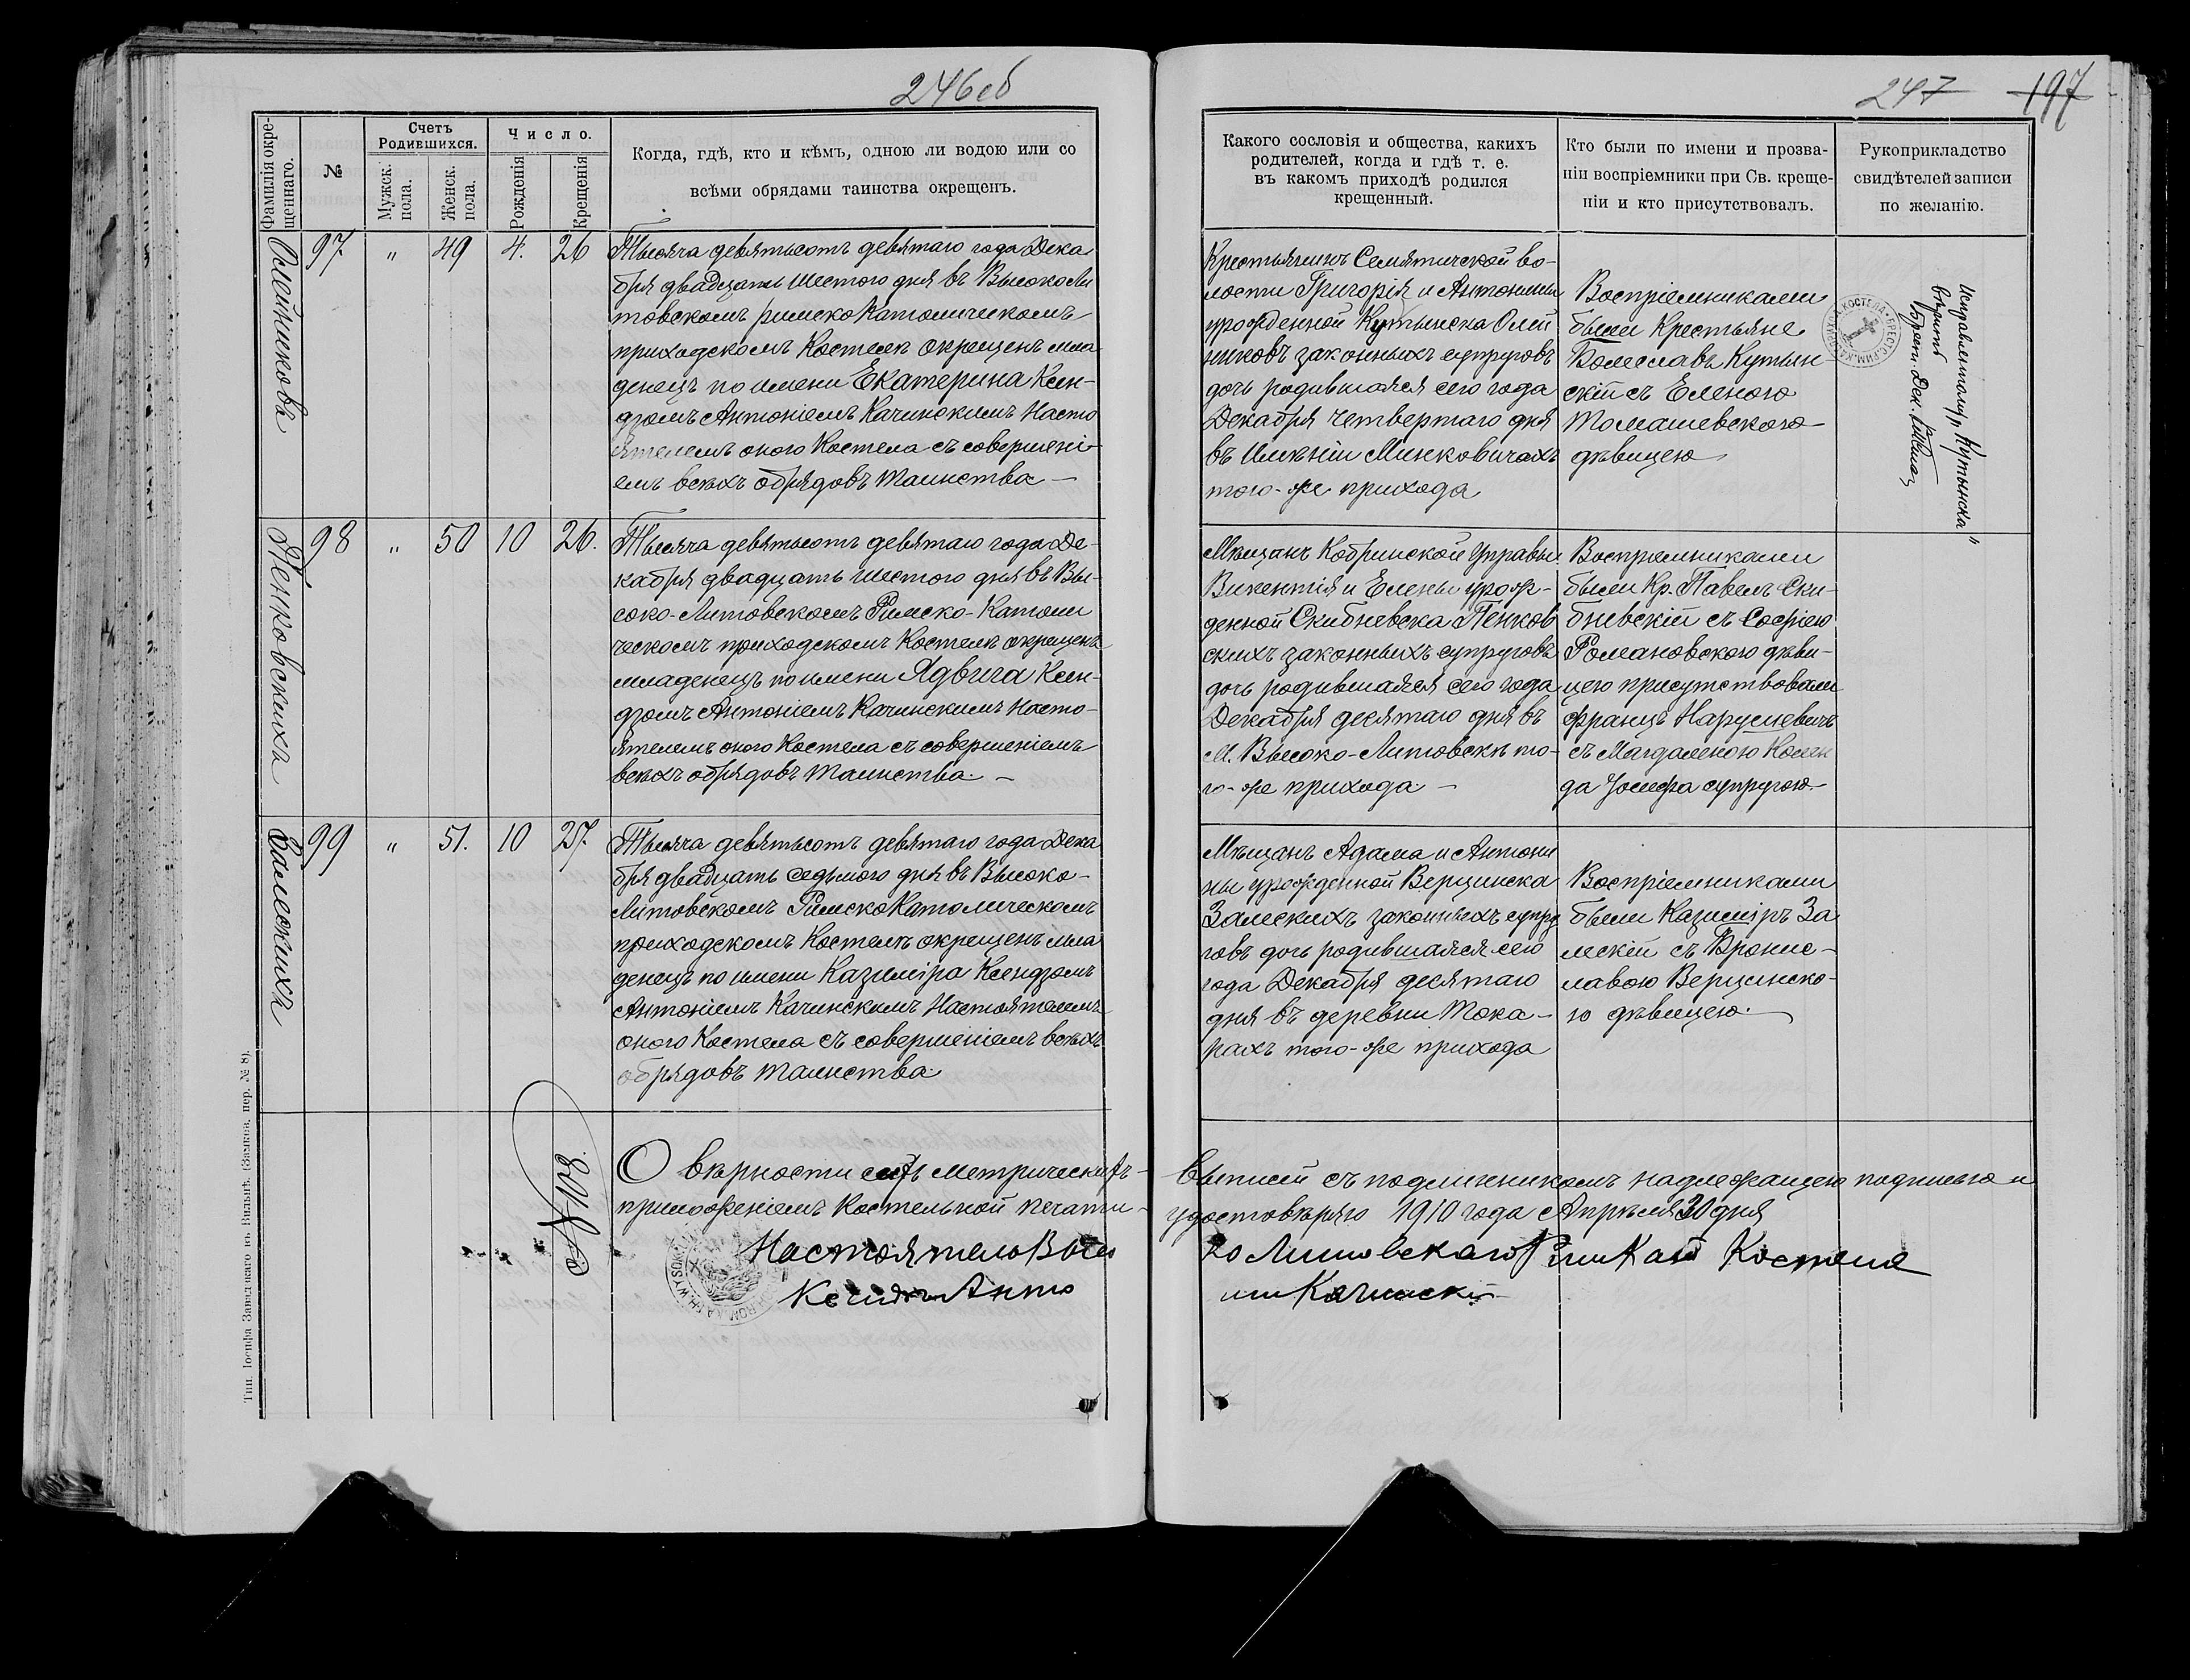 246об
Фамилія окре-
щеннаго.
№
Счетъ
Родившихся.
Мужск.
пола.
Женск.
пола.
Число.
Рожденія
Крещенія
Когда, гдѣ, кто и кѣмъ, одною ли водою или со
всѣми обрядами таинства окрещенъ.
Олейникова
97
"
49
4.
26
Тысяча девятьсотъ девятаго года Дека
бря двадцать шестого дня въ Высоко Ли
товскомъ римско Католическомъ
приходскомъ Костелѣ окрещенъ мла
денецъ по имени Екатерина Ксен-
дзомъ Антоніемъ Качинскимъ Насто
ятелемъ оного Костела съ совершені-
емъ всѣхъ обрядовъ таинства —
Пенковскихъ
98
"
50
10
26.
Тысяча девятьсотъ девятаго года Де-
кабря двадцать шестого дня въ Вы-
соко-Литовскомъ Римско-Католи
ческомъ приходскомъ Костелѣ окрещенъ
младенецъ по имени Ядвига Ксен-
дзомъ Антоніемъ Качинскимъ Насто-
ятелемъ оного Костела съ совершеніемъ
всѣхъ обрядовъ таинства. —
Залескихъ
99
"
51.
10
27.
Тысяча девятьсотъ девятаго года Дека
бря двадцать седьмого дня въ Высоко-
Литовскомъ Римско Католическомъ
приходскомъ Костелѣ окрещенъ мла
денецъ по имени Казиміра Ксендзомъ
Антоніемъ Качинскимъ Настоятелемъ
оного Костела съ совершеніемъ всѣхъ
обрядовъ таинства.
О вѣрности сихъ метрическихъ-
приложеніемъ Костельной печати-
Настоятель Высо
Ксендзъ Анто
Тип. Іосифа Завадзкаго въ Вильнѣ. (Замков. пер. № 8).
247 197
Какого сословія и общества, какихъ
родителей, когда и гдѣ т. е.
въ какомъ приходѣ родился
крещенный.
Кто были по имени и прозва-
ніи воспріемники при Св. креще-
ніи и кто присутствовалъ.
Рукоприкладство
свидѣтелей записи
по желанію.
Крестьянинъ Семятичской во-
лости Григорія и Антонины
урожденной Кутынска Олей
никовъ законныхъ супруговъ
дочь родившаяся сего года
Декабря четвертаго дня
въ Имѣніи Минковичахъ
того-же прихода
Воспріемниками
были Крестьяне
Болеславъ Кутын-
скій съ Еленою
Томашевского-
дѣвицею
Кутынска"
вѣрить
Брест. Дек.
Мѣщанъ Кобринской Управы
Викентія и Елены урож-
денной Скибневска Пенков
скихъ законныхъ супруговъ
дочь родившаяся сего года
Декабря десятаго дня въ
М. Высоко-Литовскѣ то-
го-же прихода —
Воспріемниками
были Кр. Павелъ Ски-
бневскій съ Софією
Романовскою дѣви-
цею присутствовали
Францъ Нарушевичъ
съ Магдаленою Колен
да Іосифа супругою
Мѣщанъ Адама и Антони
ны урожденной Верцинска
Залескихъ законныхъ супру
говъ дочь родившаяся сего
года Декабря десятаго
дня въ деревни Тока-
рахъ того-же прихода
Воспріемниками
были Казиміръ За
лескій съ Бронис-
лавою Верцинско-
ю дѣвицею.
выписей съ подлинникомъ надлежащею подписью и
удостовѣряю 1910 года Апрѣля 30 дня
ко Литовскаго Рим Кат Костела
ній Качинскій